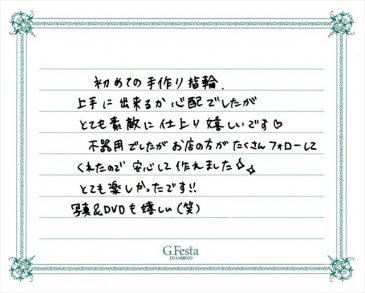 初めての手作り指輪.
上手に出来るか心配でしたが
とても素敵に仕上り嬉しいです♡
不器用でしたがお店の方がたくさんフォローして
くれたので安心して作れました☆☆
とても楽しかったです!!
写真&DVDも嬉しい(笑)
G.Festa
DIAMOND